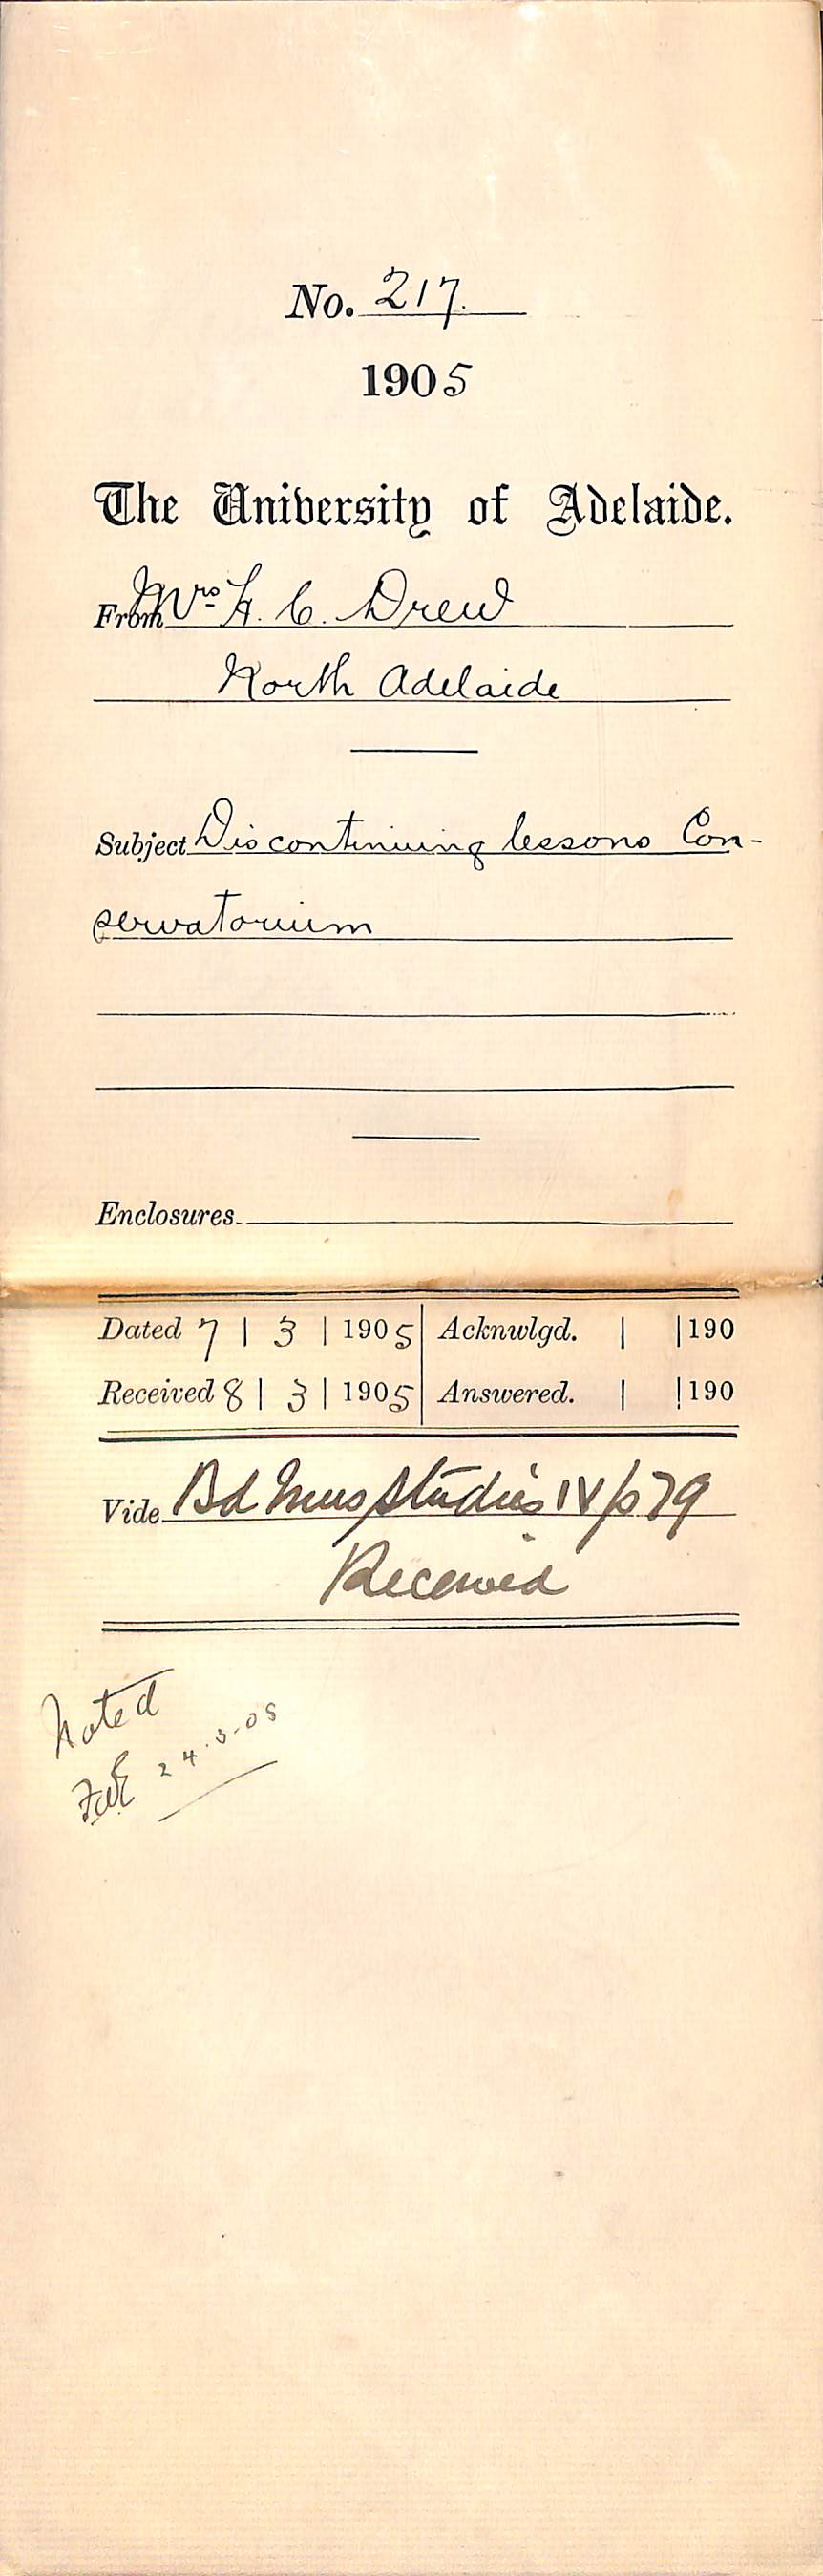 No. 217.
1905
The University of Adelaide.
From Mrs H. C. Drew
North Adelaide
Subject Discontinuing lessons Con-
servatorium
Enclosures
Dated 7 | 3 | 1905 Acknwlgd. | | 190
Received 8 | 3 | 1905 Answered. | | 190
Vide Bd Mus Studies IV/p 79
Received
Noted
24.3.05